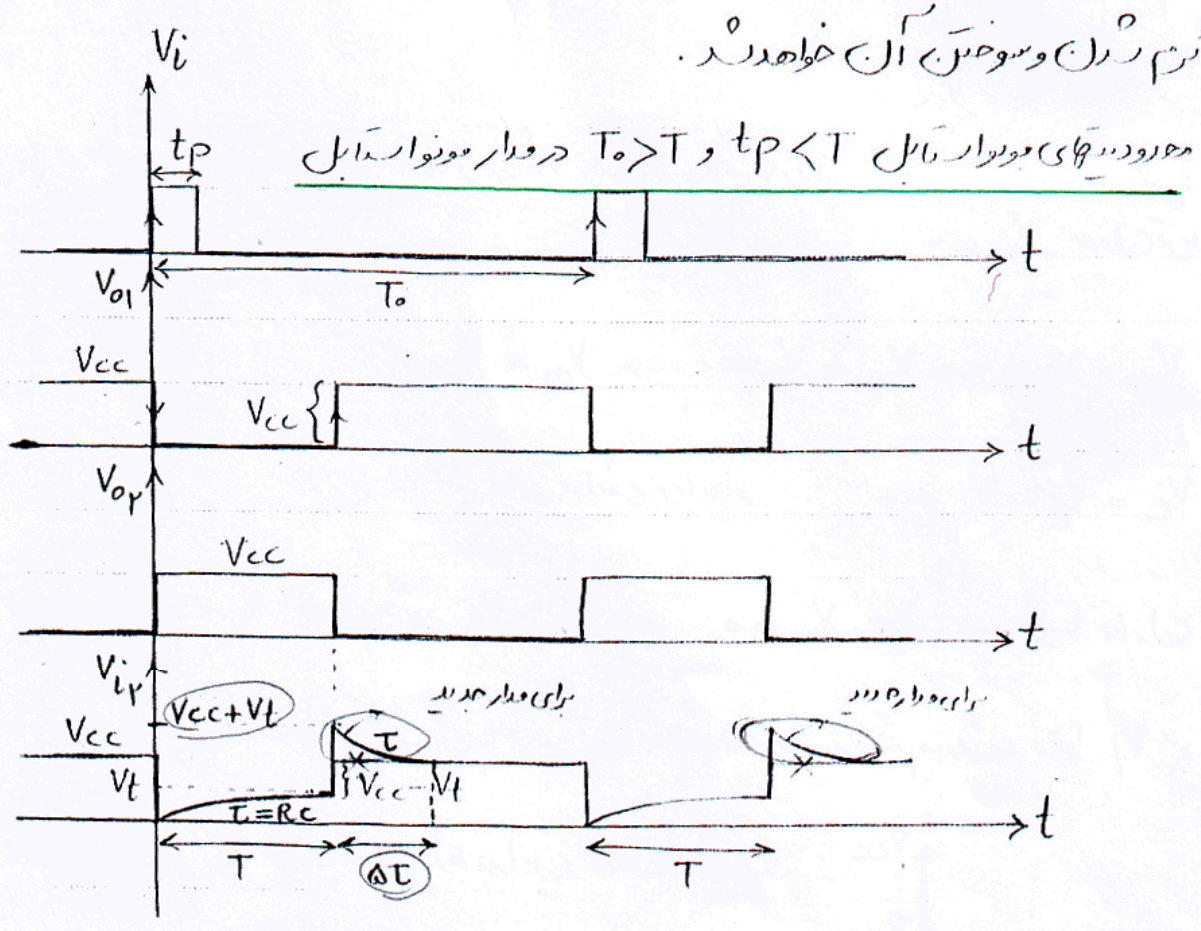 گرم شدن و سوختن آن خواهد شد.
Vi
محدودیتهای مونواستابل tp < T و T₀ > T در مدار مونواستابل
tp
t
T₀
Vo1
Vcc
Vcc
t
Vo۲
Vcc
t
Vi۲
Vcc+Vt
برای مدار جدید
برای مدار جدید
Vcc
τ
Vt
Vcc - Vt
τ=RC
t
T
۵τ
T